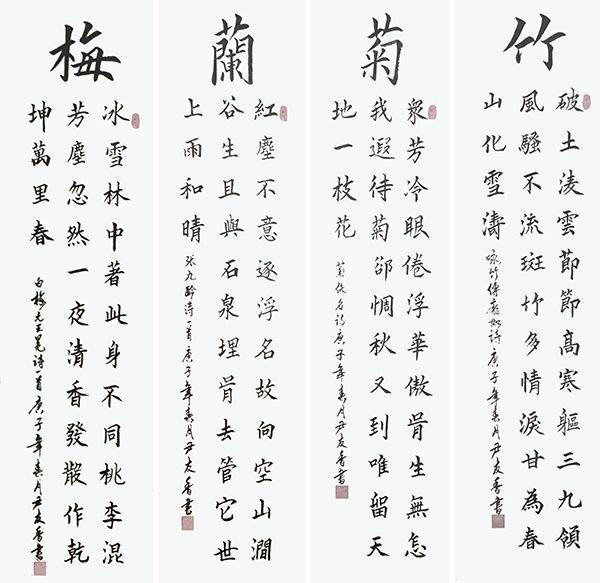 梅
冰雪林中著此身不同桃李混
芳塵忽然一夜清香發散作乾
坤萬里春
白梅元王冕诗一首庚子年春月尹友香書
蘭
紅塵不意逐浮名故向空山澗
谷生且與石泉埋骨去管它世
上雨和晴
张九龄诗一首庚子年春月尹友香書
菊
衆芳冷眼倦浮華傲骨生無怎
我遐待菊郤惆秋又到唯留天
地一枝花
菊佚名詩庚子年春月尹友香書
竹
破土淩雲節節高寒軀三九領
風騷不流斑竹多情淚甘為春
山化雪濤
咏竹詩庚子年春月尹友香書